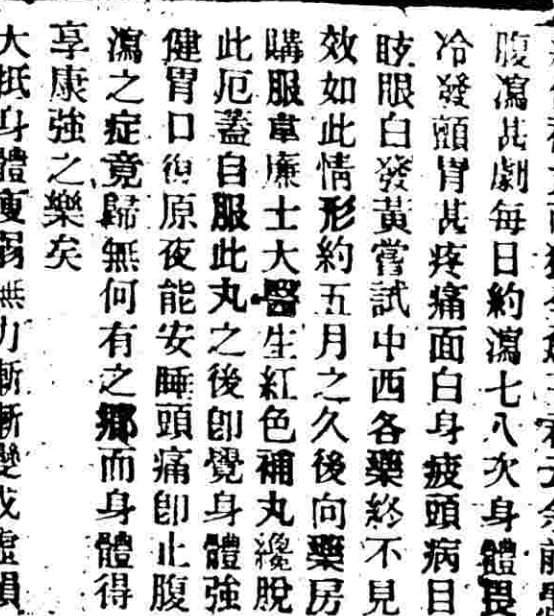 腹瀉甚劇每日約瀉七八次身體畏
冷發顫胃甚疼痛面白身疲頭病目
眩眼白發黃嘗試中西各藥終不見
效如此情形約五月之久後向藥房
購服韋廉士大醫生紅色補丸纔脫
此厄蓋自服此丸之後卽覺身體強
健胃口復原夜能安睡頭痛卽止腹
瀉之症竟歸無何有之鄉而身體得
享康強之樂矣
大抵身體瘦弱無力漸漸變成虛損